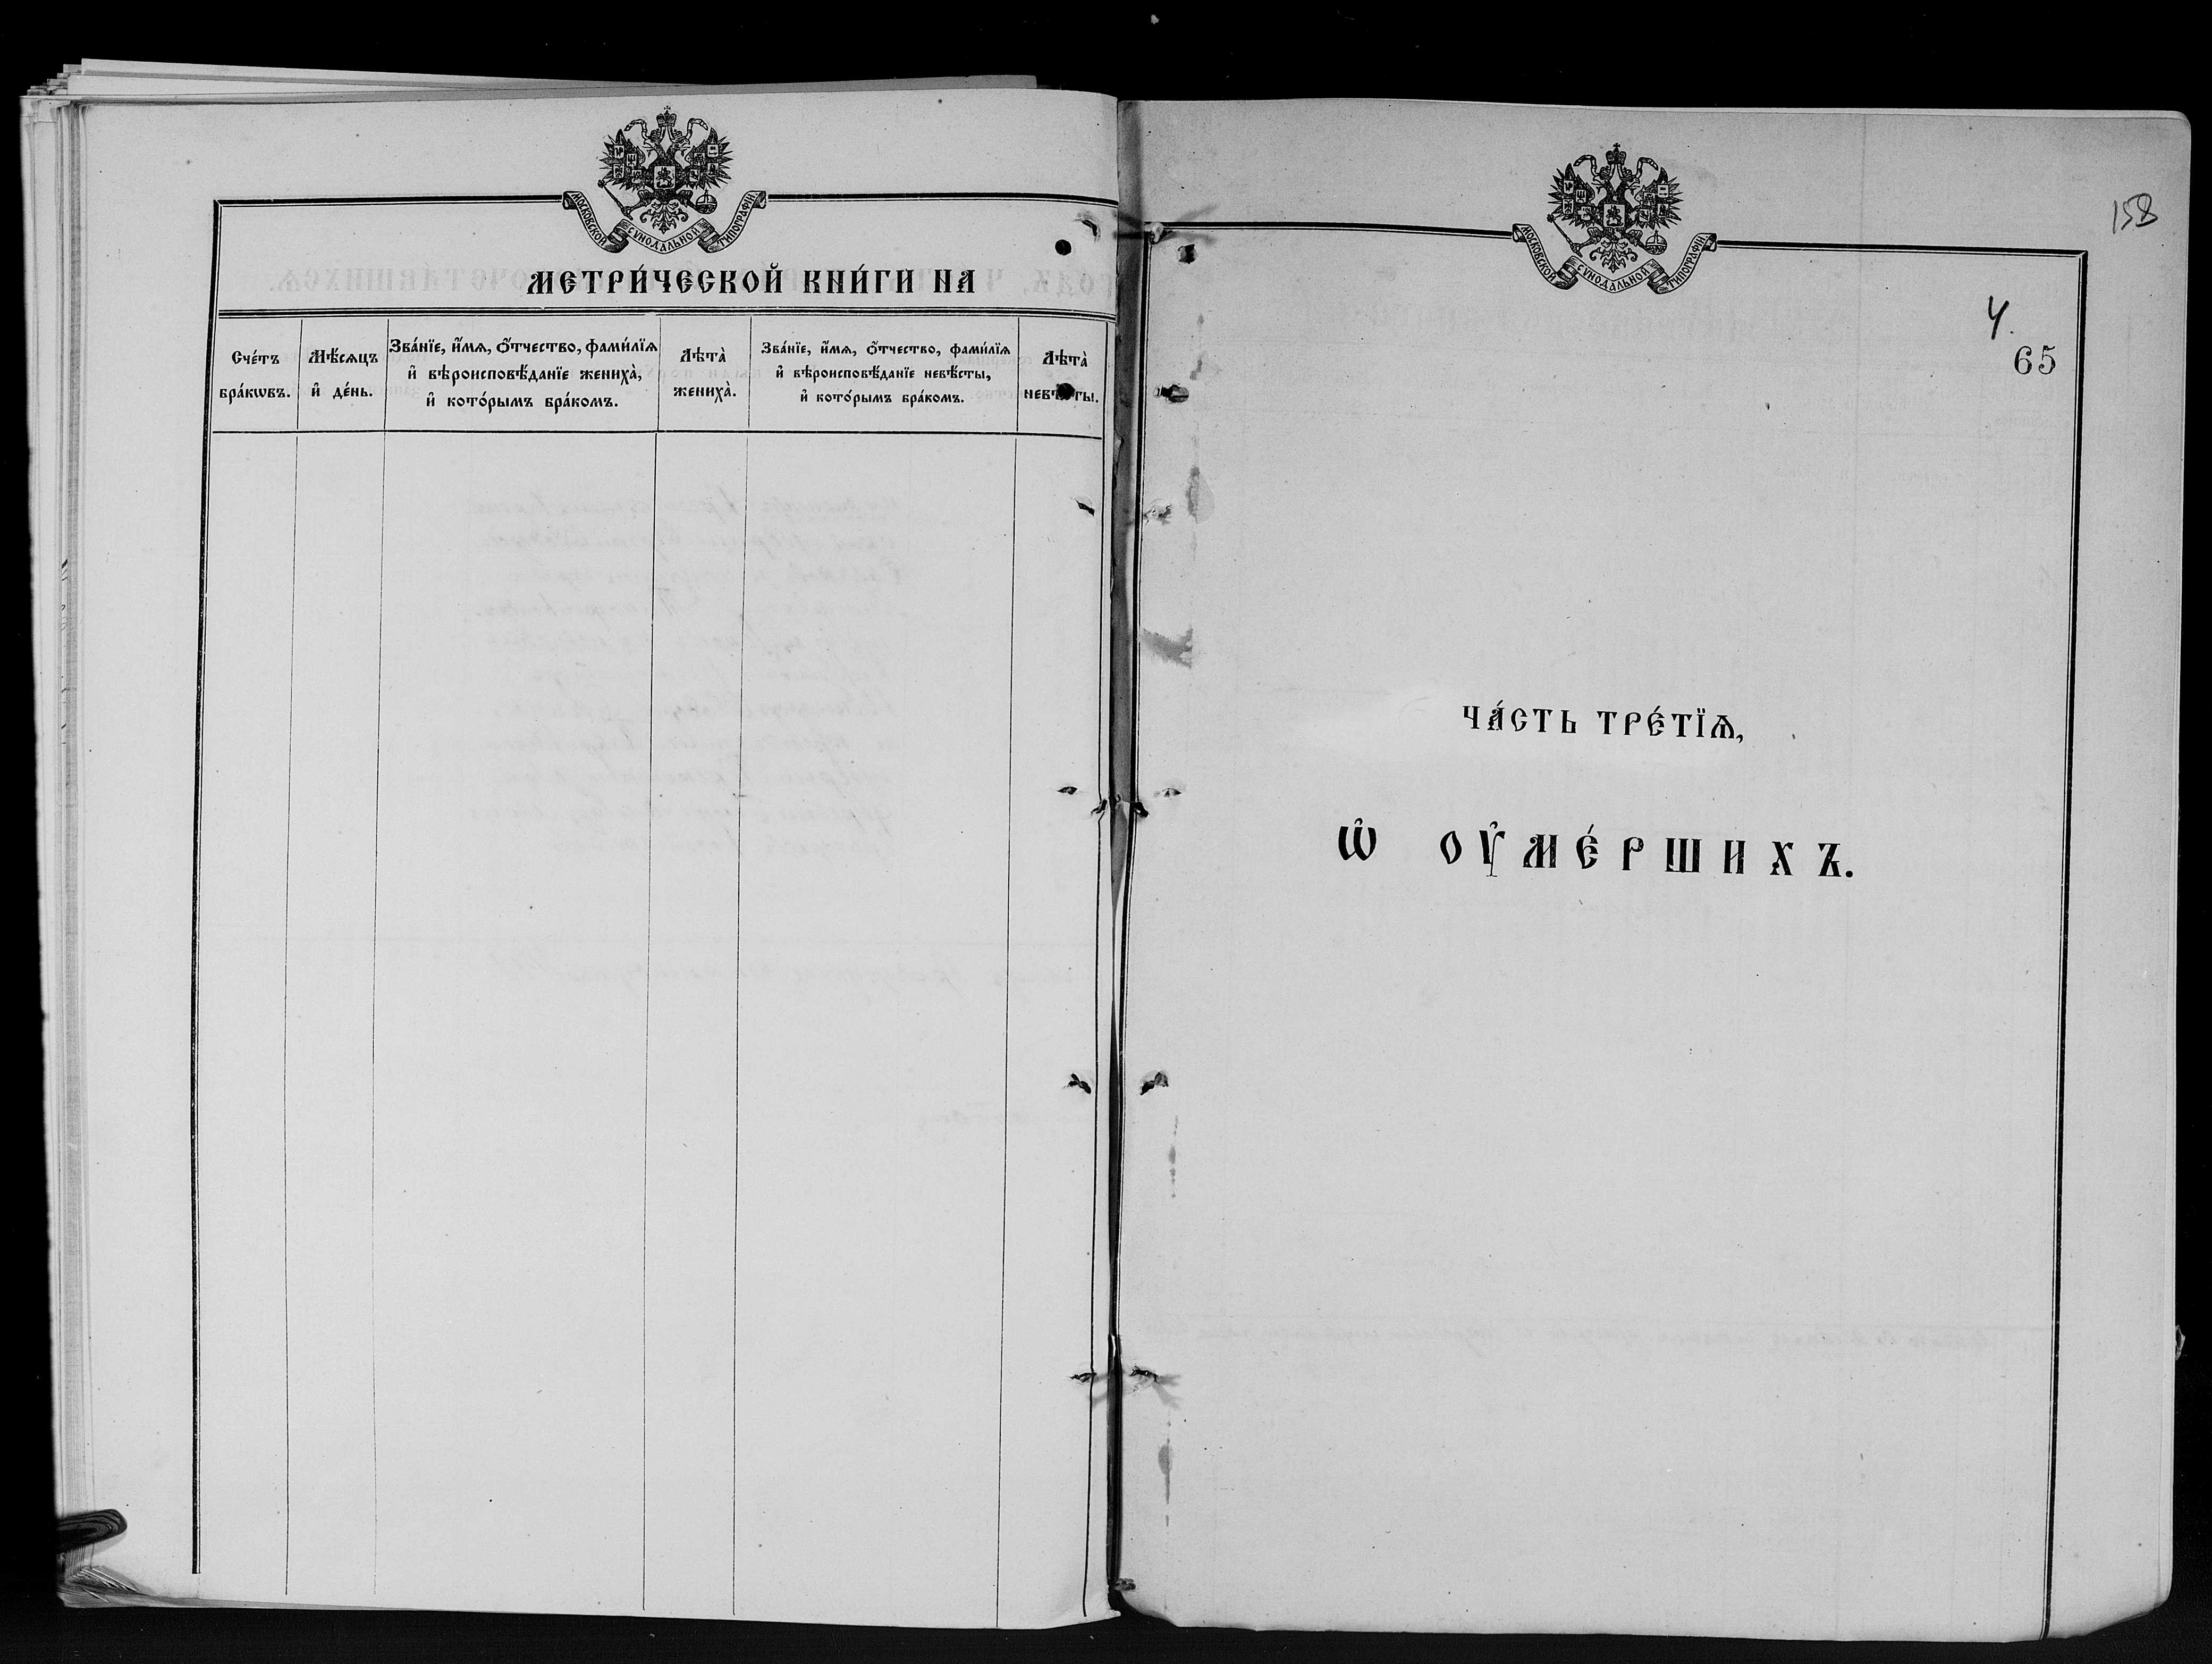 МОСКОВСКОЙ СѴНОДАЛЬНОЙ ТИПОГРАФІИ.
МЕТРИ́ЧЕСКОЙ КНИ́ГИ НА
Сче́тъ
бра́кωвъ.
Мѣ́сяцъ
и҆ де́нь.
Зва́нїе, и҆́мѧ, ѻ҆́тчество, фами́лїѧ
и҆ вѣроисповѣ́данїе жениха̀,
и҆ кото́рымъ бра́комъ.
Лѣта̀
жениха̀.
Зва́нїе, и҆́мѧ, ѻ҆́тчество, фами́лїѧ
и҆ вѣроисповѣ́данїе невѣ́сты,
и҆ кото́рымъ бра́комъ.
Лѣта̀
невѣ́сты.
МОСКОВСКОЙ СѴНОДАЛЬНОЙ ТИПОГРАФІИ.
158
65
ЧА́СТЬ ТРЕ́ТЇѦ,
Ѡ҆ ОУ҆МЕ́РШИХЪ.